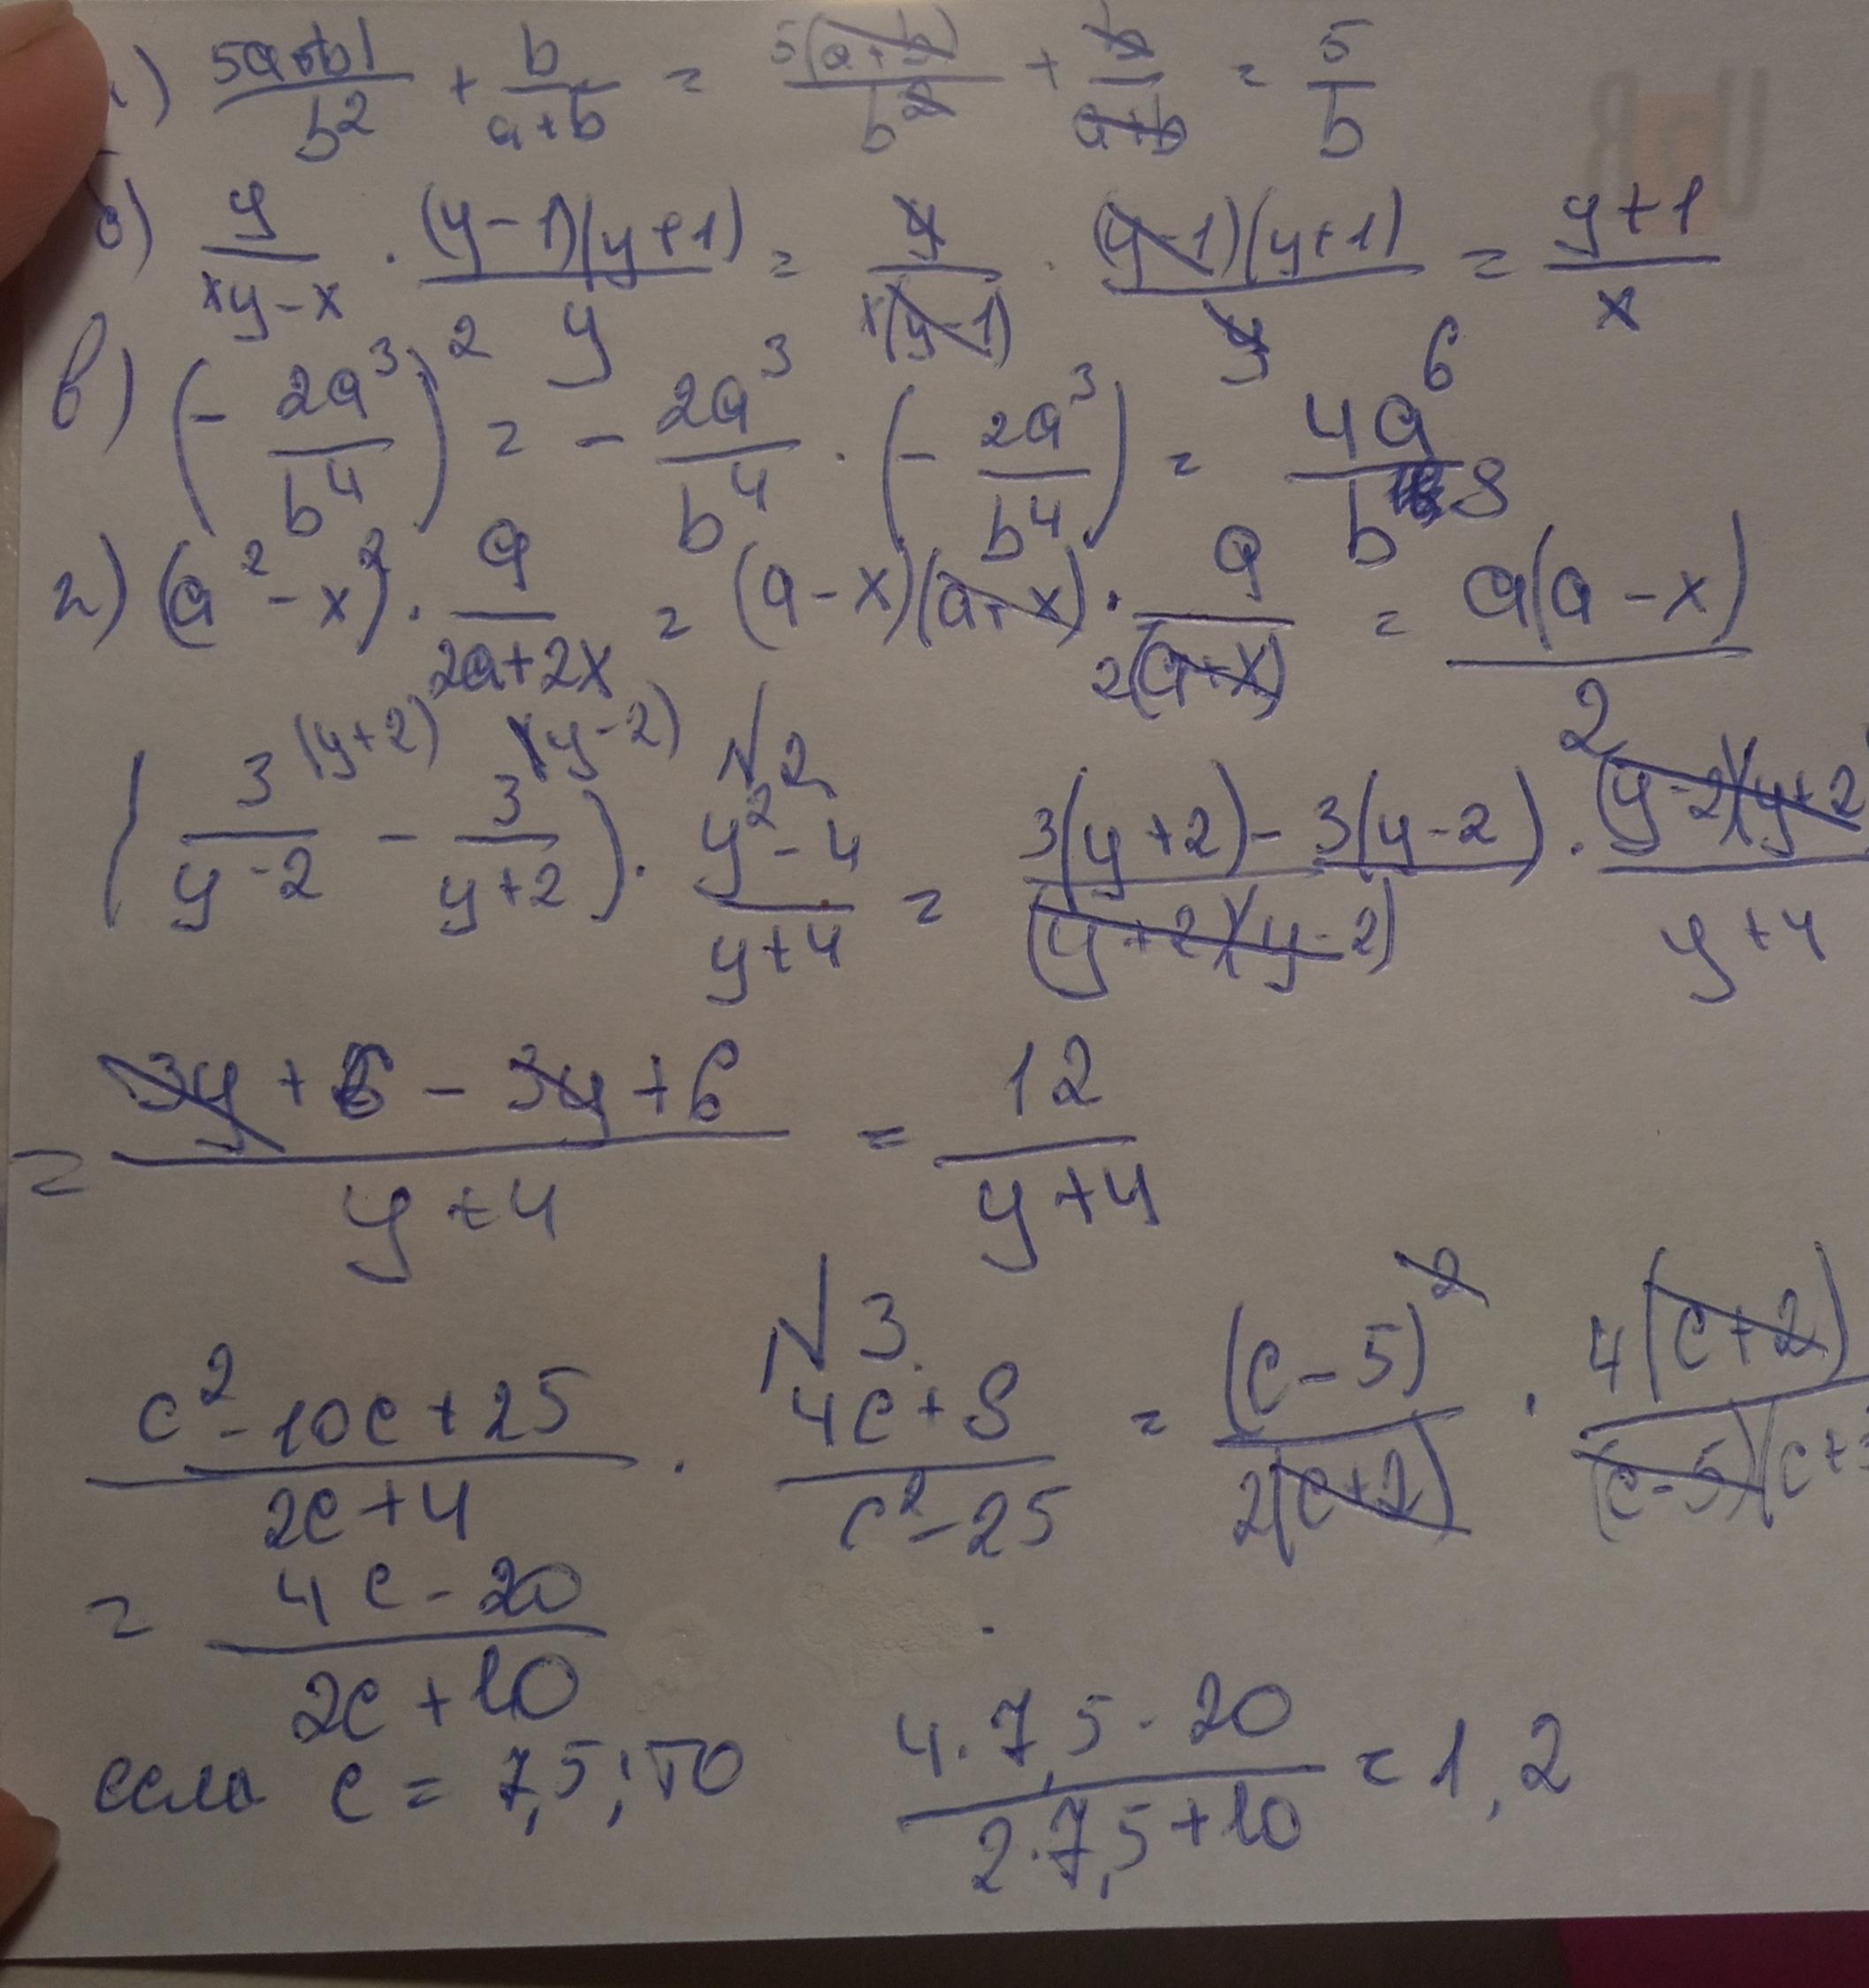 ) 5(a+b)/b² + b/(a+b) = 5(a+b)/b² + b/(a+b) = 5/b
б) y/(xy-x) · (y-1)(y+1)/y = y/(x(y-1)) · (y-1)(y+1)/y = (y+1)/x
в) (-2a³/b⁴)² = -2a³/b⁴ · (-2a³/b⁴) = 4a⁶/b⁸
г) (a²-x²) · a/(2a+2x) = (a-x)(a+x) · a/(2(a+x)) = a(a-x)/2
№2
(3^(y+2)/(y-2) - 3^(y-2)/(y+2)) · (y²-4)/(y+4) = (3(y+2)-3(y-2))/((y+2)(y-2)) · (y-2)(y+2/(y+4)
= (3y+6-3y+6)/(y+4) = 12/(y+4)
№3.
(c²-10c+25)/(2c+4) · (4c+8)/(c²-25) = (c-5)²/(2(c+2)) · 4(c+2)/((c-5)(c+
= (4c-20)/(2c+10)
если c = 7,5; то (4·7,5-20)/(2·7,5+10) = 1,2